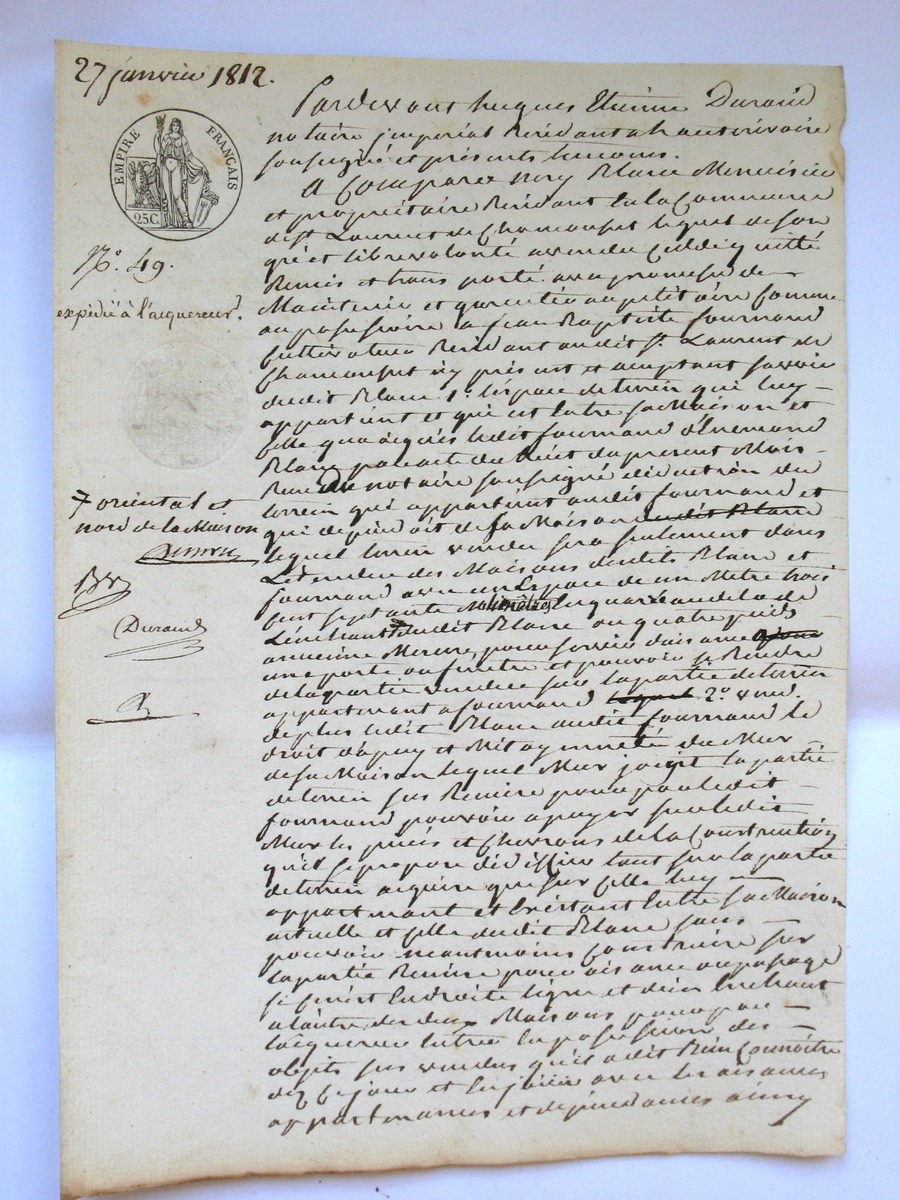 27 janvier 1812.
EMPIRE FRANÇAIS
25C.
N.° 49.
expédié à l'acquereur.
+ oriental et
nord de la Maison
Durand
Pardevant hugues Etienne Durand
notaire jmperial Residant a
soussigné et présents temoins.
A Comparu Blanc Menuisier
et propriétaire Residant en la Commune
de St Laurent de Chamousset lequel de son
gré et libre volonté a vendu Cedé quitté
Remis et transporté avec promesse de
Maintenir et garentie au petitoire Comme
au possessoire a jean Baptiste fournand
Cultivateur Residant audit St. Laurent de
Chamousset icy présent et acceptant savoir
dudit Blanc 1.° l'éspace de terrein qui luy
appartient et qui est Entre sa Maison et
Celle qu'a acquis ledit fournand d'Enemond
Blanc par acte du huit du present Mois
Recu du notaire soussigné déduction du
terrein qui appartient audit fournand et
qui dépendoit de sa Maison dudit Blanc
lequel terrein vendu sera seulement dans
L'étendue des Maisons desdits Blanc et
fournand avec un Espace de un Metre trois
Cent septante Millimetres en quarré au dela de
L'enchant + dudit Blanc ou quatre pieds
ancienne Mesure pour servir d'aisance
une porte ou fenêtre et pouvoir se Rendre
de la partie vendue sur la partie de terrein
appartenant a fournand 2.° vend
de plus ledit Blanc audit fournand le
droit d'apuy et Mitoyenneté du Mur
de sa Maison lequel Mur joint la partie
de terrein sus Remise pour par ledit
fournand pouvoir apuyer sur ledit
Mur les piéces et Chevrons de la Construction
qu'il se propose d'édiffier tant sur la partie
de terrein acquise que sur Celle luy
appartenant et Existant Entre sa Maison
actuelle et Celle dudit Blanc sans
pouvoir neantmoins Construire sur
la partie Remise pour aisance ou passage
si ce n'est En droite ligne et d'un Enchant
a l'autre des deux Maisons pour par
l'acquereur Entrer En possession des
objets sus vendus qu'il a dit bien Connoitre
dez Ce jour et En jouir avec les aisances
appartenances et dépendances ainsy